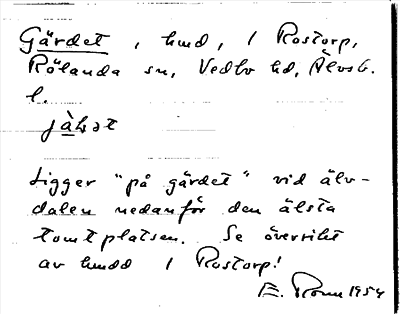 Gärdet, hmd, 1 Rostorp,
Rölanda sn, Vedbo hd, Älvsb.
l.
Ligger "på gärdet" vid älv-
dalen nedanför den älsta
tomtplatsen. Se översikt
av hmdd 1 Rostorp!
E. 1954